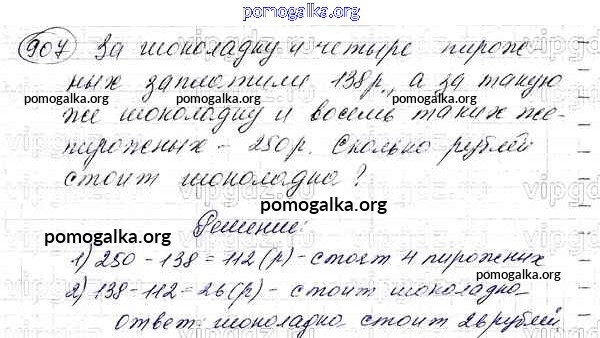 pomogalka.org
907 За шоколадку и четыре пирож-
ных заплатили 138р., а за такую
pomogalka.org pomogalka.org
же шоколадку и восемь таких же
пирожных - 250р. Сколько рублей
стоит шоколадка?
pomogalka.org
Решение:
pomogalka.org
1) 250 - 138 = 112 (р) - стоят 4 пирожных
pomogalka.org
2) 138 - 112 = 26 (р) - стоит шоколадка
Ответ: шоколадка стоит 26 рублей